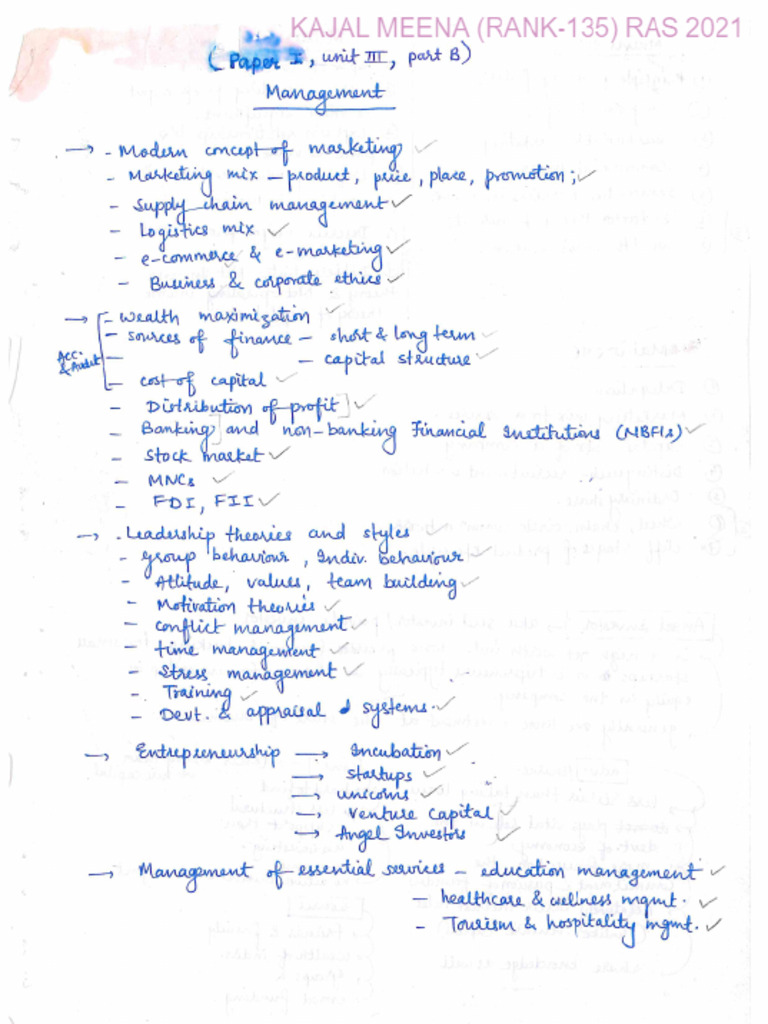 KAJAL MEENA (RANK-135) RAS 2021
(Paper I, unit III, part B)
Management
→ - Modern concept of marketing ✓
- Marketing mix – product, price, place, promotion; ✓
- Supply chain management ✓
- Logistics mix ✓
- e-commerce & e-marketing ✓
- Business & corporate ethics ✓
→ - wealth maximization ✓
- sources of finance – short & long term ✓
Acc. & Audit
- – capital structure ✓
- cost of capital ✓
- Distribution of profit] ✓
- Banking] and non-banking Financial Institutions (NBFIs) ✓
- Stock market ✓
- MNCs ✓
- FDI, FII ✓
→ - Leadership theories and styles ✓
- group behaviour, Indiv. behaviour
- Attitude, values, team building ✓
- Motivation theories ✓
- conflict management ✓
- time management ✓
- Stress management ✓
- Training ✓
- Devt. & appraisal systems. ✓
→ Entrepreneurship → Incubation ✓
→ startups ✓
→ unicorns ✓
→ venture capital ✓
→ Angel Investors ✓
→ Management of essential services – education management ✓
– healthcare & wellness mgmt. ✓
- Tourism & hospitality mgmt. ✓